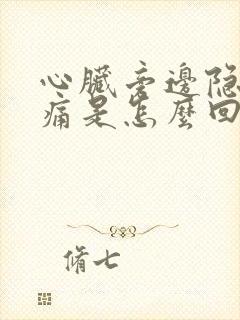 心臟旁邊隐
痛是怎麼回
脩七